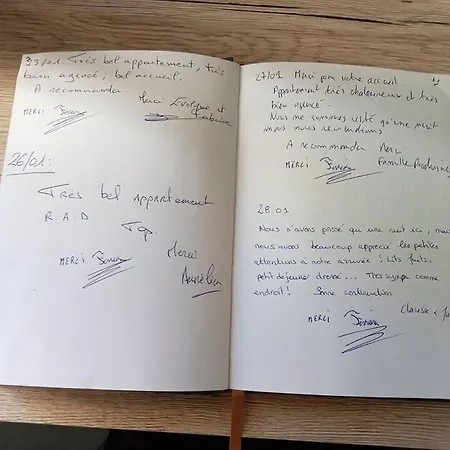 23/01. Très bel appartement, très
bien agencé; bel accueil.
A recommander.
Merci Evelyne et
MERCI
26/01:
Très bel appartement
R.A.D
Top.
Merci
MERCI
Aurélien
27/01 Merci pour votre accueil
Appartement très chaleureux et très
bien agencé.
Nous ne sommes resté qu'une nuit
mais nous reviendrons
A recommander Merci
MERCI Famille
28.01
Nous n'avons passé qu'une nuit ici, mais
nous avons beaucoup apprécié les petites
attentions à notre arrivée! Lits faits,
petit déjeuner dressé... Très sympa comme
endroit! Bonne continuation
MERCI